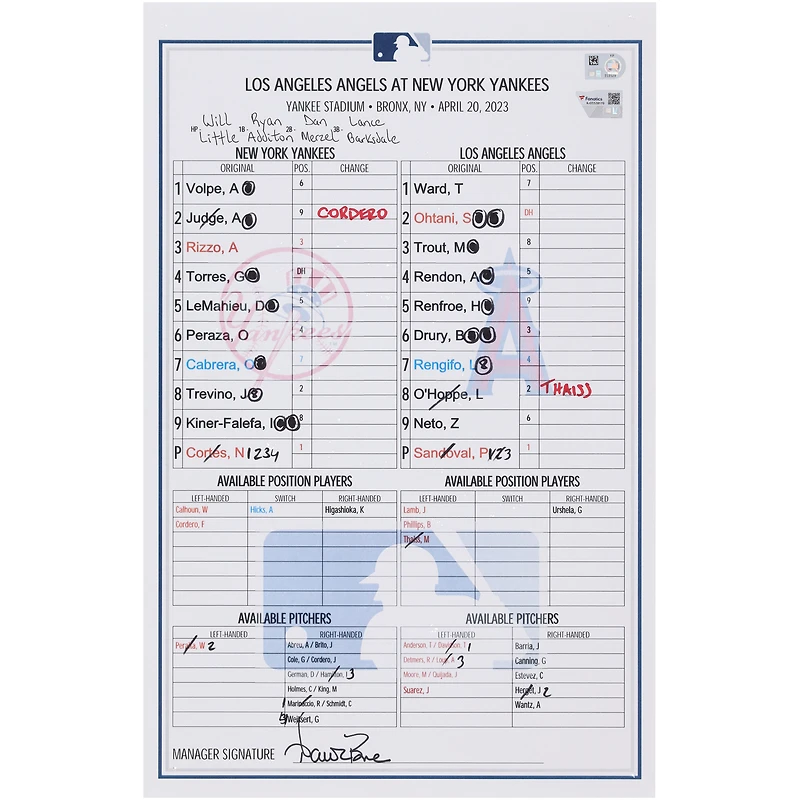 LOS ANGELES ANGELS AT NEW YORK YANKEES
YANKEE STADIUM • BRONX, NY • APRIL 20, 2023
Will Ryan Dan Lance
HP. Little 1B. Additon 2B. Merzel 3B. Barksdale
NEW YORK YANKEES
ORIGINAL POS. CHANGE
1 Volpe, A 6
2 Judge, A 9 CORDERO
3 Rizzo, A 3
4 Torres, G DH
5 LeMahieu, D 5
6 Peraza, O 4
7 Cabrera, O 7
8 Trevino, J 2
9 Kiner-Falefa, I 8
P Cortes, N 1234 1
LOS ANGELES ANGELS
ORIGINAL POS. CHANGE
1 Ward, T 7
2 Ohtani, S DH
3 Trout, M 8
4 Rendon, A 5
5 Renfroe, H 9
6 Drury, B 3
7 Rengifo, L 4
8 O'Hoppe, L 2 THAISS
9 Neto, Z 6
P Sandoval, P 123 1
AVAILABLE POSITION PLAYERS
LEFT-HANDED SWITCH RIGHT-HANDED
Calhoun, W Hicks, A Higashioka, K
Cordero, F
AVAILABLE POSITION PLAYERS
LEFT-HANDED SWITCH RIGHT-HANDED
Lamb, J Urshela, G
Phillips, B
Thaiss, M
AVAILABLE PITCHERS
LEFT-HANDED RIGHT-HANDED
Peralta, W 2 Abreu, A / Brito, J
Cole, G / Cordero, J
German, D / Hamilton, I 3
Holmes, C / King, M
1 Marinaccio, R / Schmidt, C
Weissert, G
AVAILABLE PITCHERS
LEFT-HANDED RIGHT-HANDED
Anderson, T / Davidson, T 1 Barria, J
Detmers, R / Loup, A 3 Canning, G
Moore, M / Quijada, J Estevez, C
Suarez, J Herget, J 2
Wantz, A
MANAGER SIGNATURE
Fanatics
Yankees